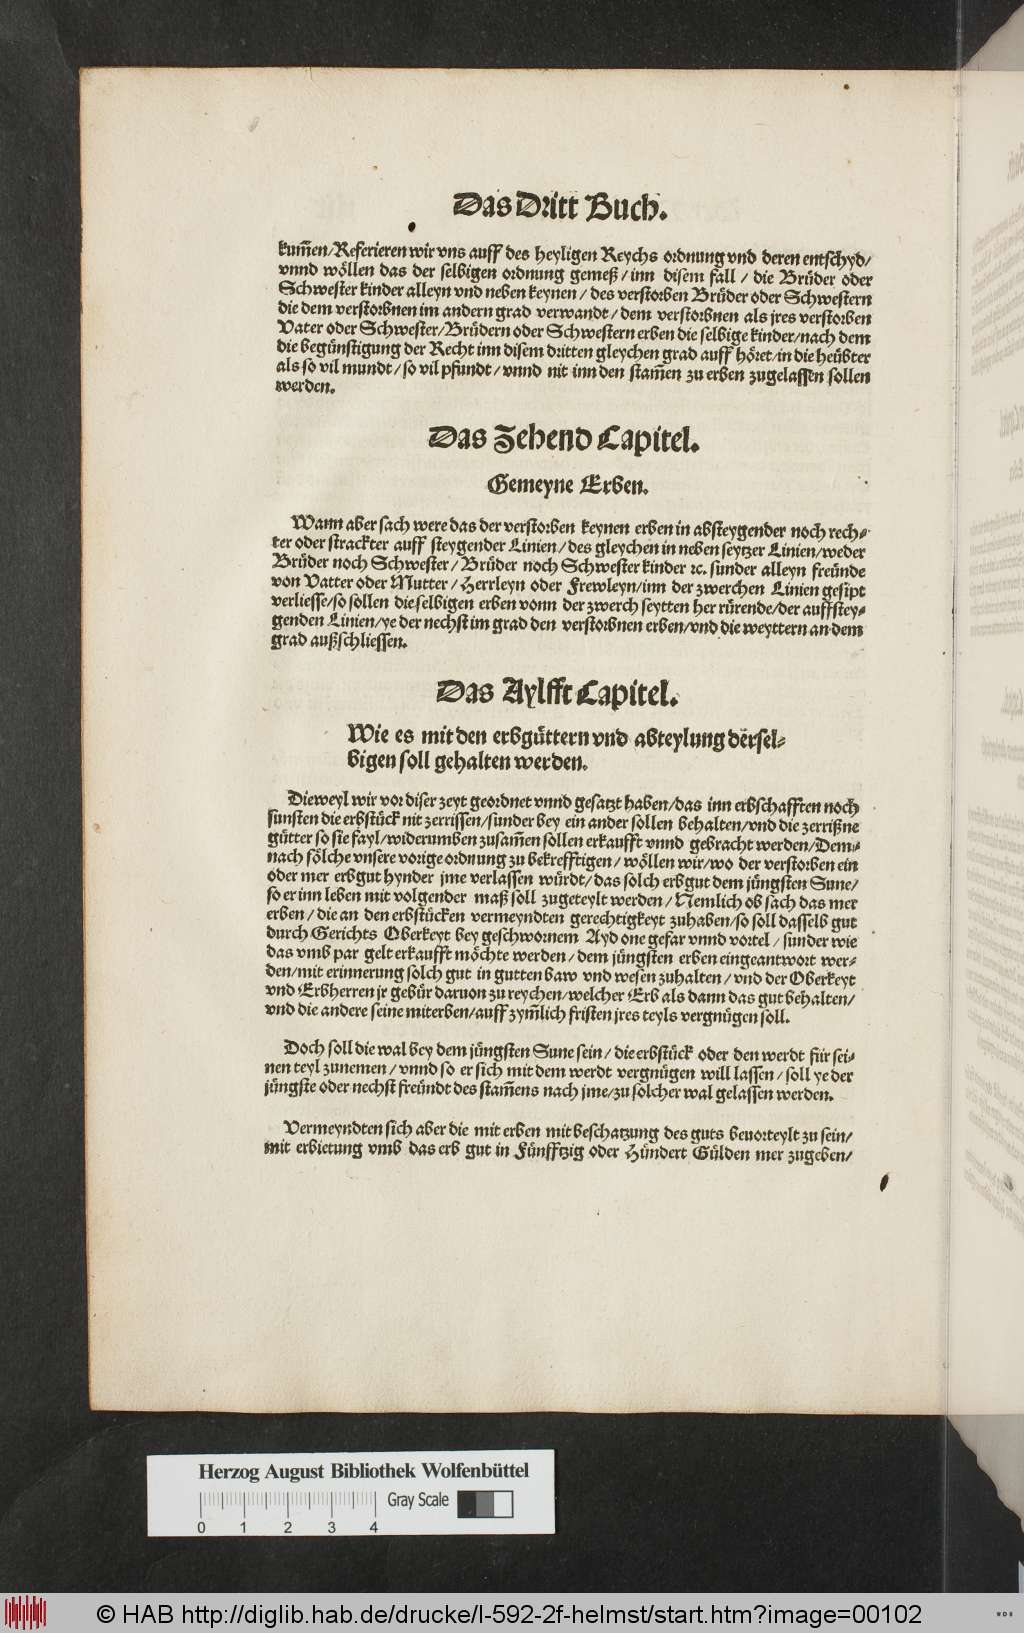 Das Dritt Buch.
kum̃en/Referieren wir vns auff des heyligen Reychs ordnung vnd deren entschyd/
vnnd wöllen das der selbigen ordnung gemeß/inn disem fall/die Brüder oder
Schwester kinder alleyn vnd neben keynen/des verstorben Brüder oder Schwestern
die dem verstorbnen im andern grad verwandt/dem verstorbnen als jres verstorben
Vater oder Schwester/Brüdern oder Schwestern erben die selbige kinder/nach dem
die begünstigung der Recht inn disem dritten gleychen grad auff höret/in die heübter
als so vil mundt/so vil pfundt/vnnd nit inn den stam̃en zu erben zugelassen sollen
werden.
Das Zehend Capitel.
Gemeyne Erben.
Wann aber sach were das der verstorben keynen erben in absteygender noch rech-
ter oder strackter auff steygender Linien/des gleychen in neben seytzer Linien/weder
Brüder noch Schwester/Brüder noch Schwester kinder ꝛc. sunder alleyn freünde
von Vatter oder Mutter/Herrleyn oder Frewleyn/inn der zwerchen Linien gesipt
verliesse/so sollen die selbigen erben vonn der zwerch seytten her rürende/der auffstey-
genden Linien/ye der nechst im grad den verstorbnen erben/vnd die weyttern an dem
grad außschliessen.
Das Aylfft Capitel.
Wie es mit den erbgüttern vnd abteylung dersel-
bigen soll gehalten werden.
Dieweyl wir vor diser zeyt geordnet vnnd gesatzt haben/das inn erbschafften noch
sunsten die erbstück nit zerrissen/sunder bey ein ander sollen behalten/vnd die zerrißne
gütter so sie fayl/widerumben zusam̃en sollen erkaufft vnnd gebracht werden/Dem-
nach sölche vnsere vorige ordnung zu bekrefftigen/wöllen wir/wo der verstorben ein
oder mer erbgut hynder jme verlassen würdt/das solch erbgut dem jüngsten Sune/
so er inn leben mit volgender maß soll zugeteylt werden/Nemlich ob sach das mer
erben/die an den erbstücken vermeyndten gerechtigkeyt zuhaben/so soll dasselb gut
durch Gerichts Oberkeyt bey geschwornem Ayd one gefar vnnd vortel/sunder wie
das vmb par gelt erkaufft möchte werden/dem jüngsten erben eingeantwort wer-
den/mit erinnerung solch gut in gutten baw vnd wesen zuhalten/vnd der Oberkeyt
vnd Erbherren jr gebür daruon zu reychen/welcher Erb als dann das gut behalten/
vnd die andere seine miterben/auff zym̃lich fristen jres teyls vergnügen soll.
Doch soll die wal bey dem jüngsten Sune sein/die erbstück oder den werdt für sei-
nen teyl zunemen/vnnd so er sich mit dem werdt vergnügen will lassen/soll ye der
jüngste oder nechst freündt des stam̃ens nach jme/zu sölcher wal gelassen werden.
Vermeyndten sich aber die mit erben mit beschatzung des guts beuorteylt zu sein/
mit erbietung vmb das erb gut in Fünfftzig oder Hundert Gülden mer zugeben/
Herzog August Bibliothek Wolfenbüttel
Gray Scale
0 1 2 3 4
© HAB http://diglib.hab.de/drucke/l-592-2f-helmst/start.htm?image=00102